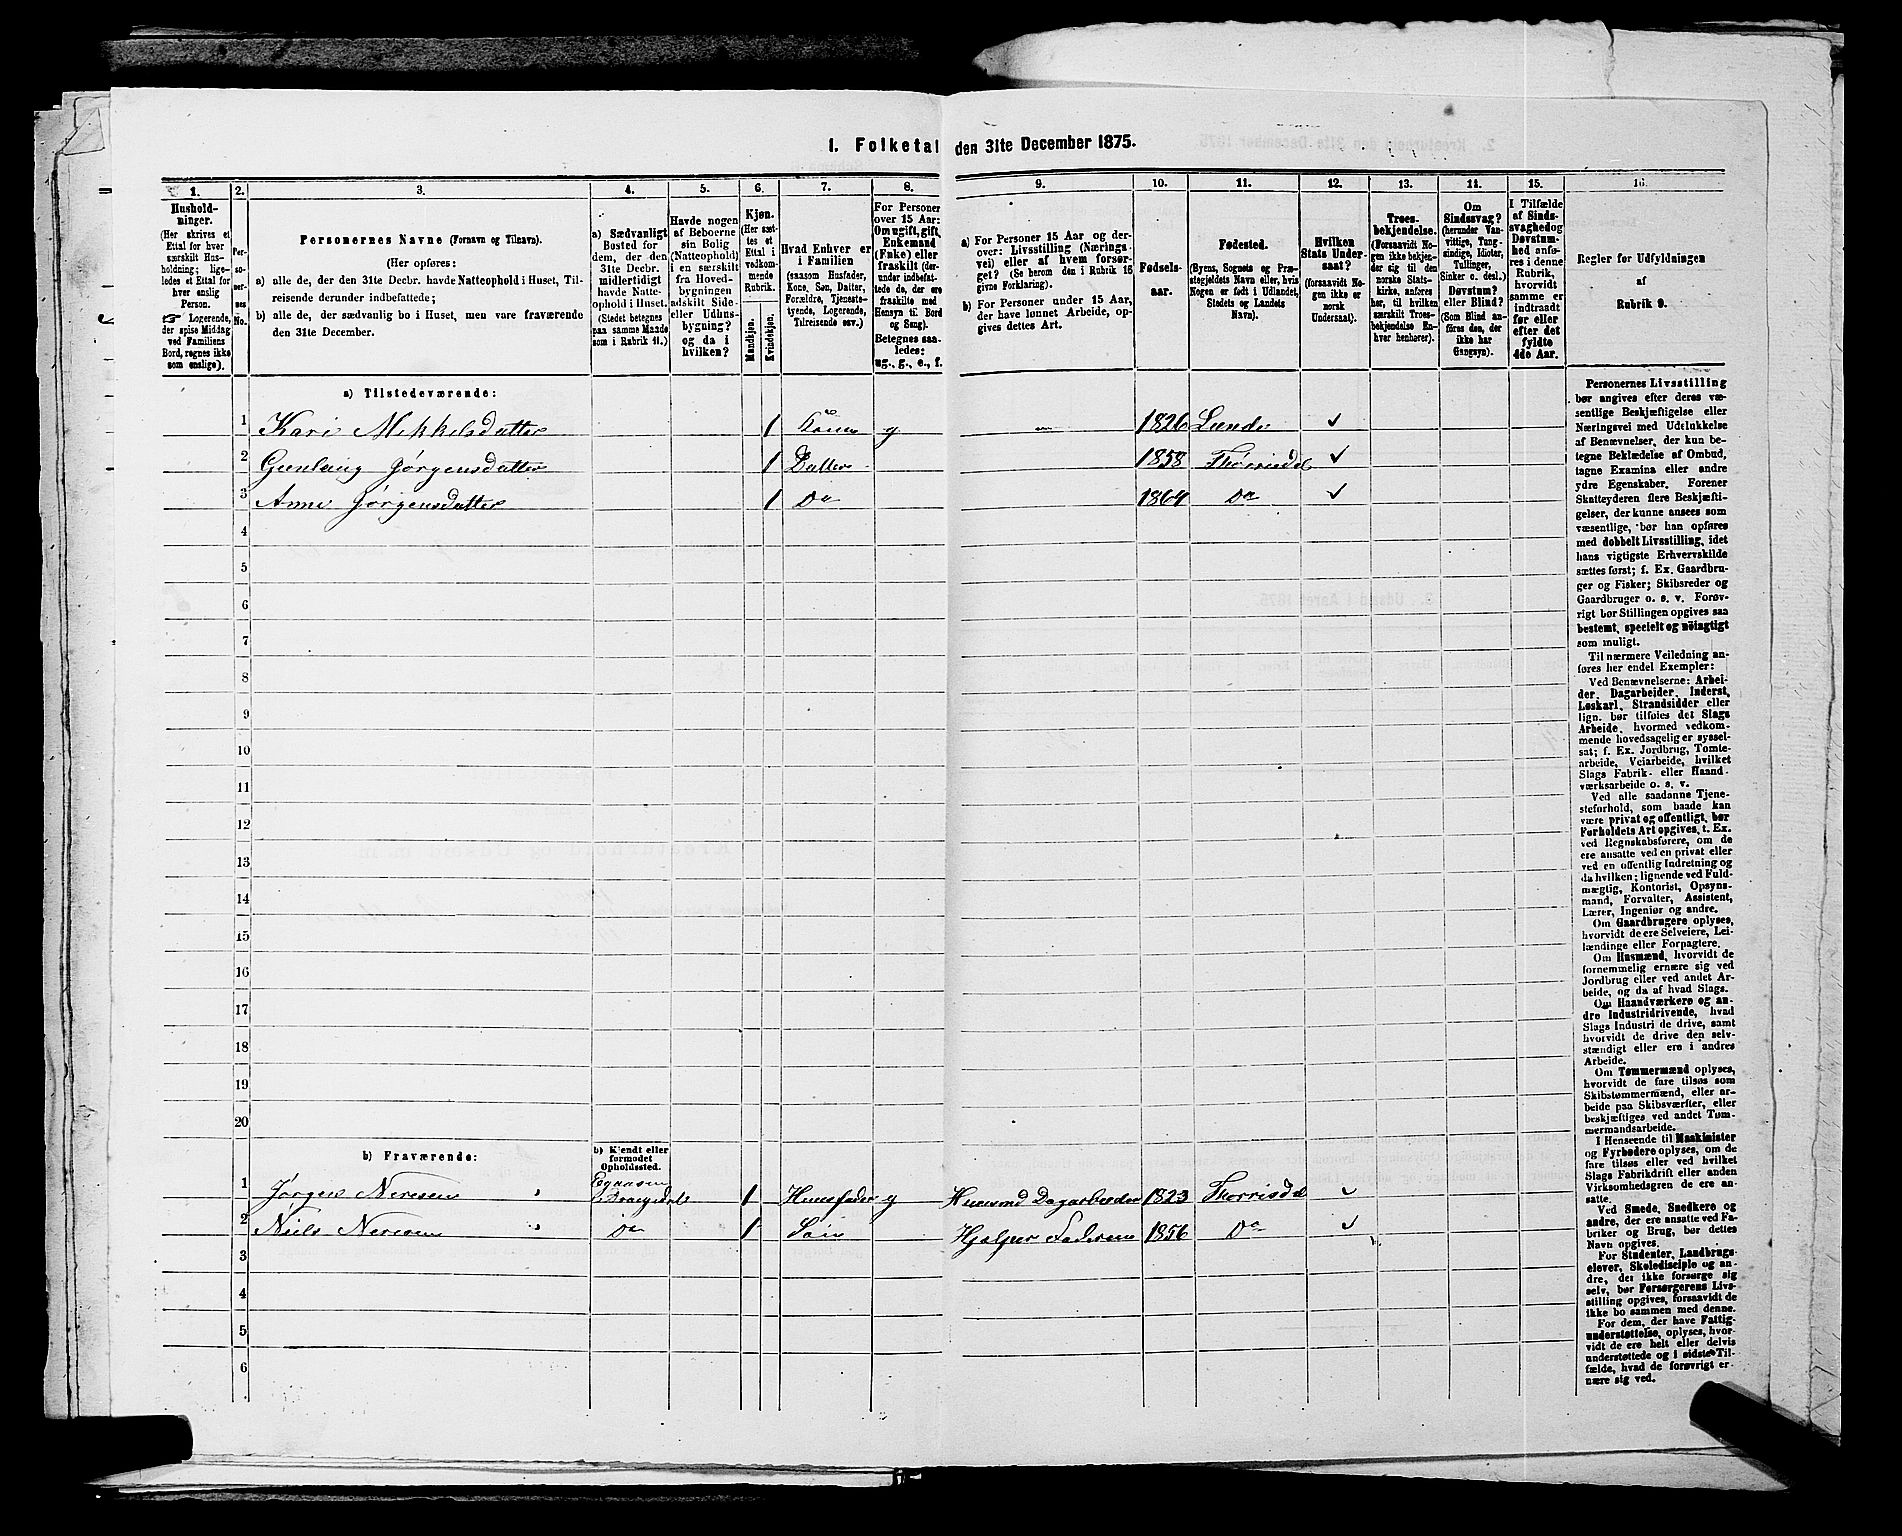 1. Folketal den 31te December 1875.
1. 2. 3. 4. 5. 6. 7. 8. 9. 10. 11. 12. 13. 14. 15. 16.
Hushold-
ninger.
(Her skrives et
Ettal for hver
særskilt Hus-
holdning; lige-
ledes et Ettal for
hver enslig
Person.
☞ Logerende,
der spise Middag
ved Familiens
Bord, regnes ikke
som enslige).
Per-
so-
ner-
nes
No.
Personernes Navne (Fornavn og Tilnavn).
(Her opføres:
a) alle de, der den 31te Decbr. havde Natteophold i Huset, Til-
reisende derunder indbefattede;
b) alle de, der sædvanlig bo i Huset, men vare fraværende
den 31te December.
a) Sædvanligt
Bosted for
dem, der den
31te Decbr.
midlertidigt
havde Natte-
ophold i Huset.
(Stedet betegnes
paa samme Maade
som i Rubrik 11.)
Havde nogen
af Beboerne
sin Bolig
(Natteophold)
i en særskilt
fra Hoved-
bygningen
adskilt Side-
eller Udhus-
bygning?
og da i
hvilken?
Kjøn.
(Her sæt-
tes et
Ettal i
vedkom-
mende
Rubrik.
Mandkjøn.
Kvindekjøn.
Hvad Enhver er
i Familien
(saasom Husfader,
Kone, Søn, Datter,
Forældre, Tjeneste-
tyende, Logerende,
Tilreisende osv.)
For Personer
over 15 Aar:
Om ugift, gift,
Enkemand
(Enke) eller
fraskilt (der-
under indbefat-
tede de, der ere
fraskilte med
Hensyn til Bord
og Seng).
Betegnes saa-
ledes:
ug., g., e., f.
a) For Personer 15 Aar og der-
over: Livsstilling (Nærings-
vei) eller af hvem forsør-
get? (Se herom den i Rubrik 16
givne Forklaring).
b) For Personer under 15 Aar,
der have lønnet Arbeide, op-
gives dettes Art.
Fødsels-
aar.
Fødested.
(Byens, Sognets og Præ-
stegjeldets Navn eller, hvis
Nogen er født i Udlandet,
Stedets og Landets
Navn).
Hvilken
Stats Under-
saat?
(forsaavidt No-
gen ikke er
norsk
Undersaat).
Troes-
bekjendelse.
(Forsaavidt No-
gen ikke bekjen-
der sig til den
norske Stats-
kirke, anføres
her, til hvilken
særskilt Troes-
bekjendelse En-
hver henhører).
Om
Sindssvag?
(herunder Van-
vittige, Tung-
sindige, Idioter,
Tullinger,
Sinker o. desl.)
Døvstum?
eller Blind?
(Som Blind an-
føres den, der
ikke har
Gangsyn).
I Tilfælde
af Sinds-
svaghed og
Døvstum-
hed anfø-
res i denne
Rubrik,
hvorvidt
samme er
indtraadt
før eller
efter det
fyldte
4de Aar.
Regler for Udfyldningen
af
Rubrik 9.
a) Tilstedeværende:
1 Kari Mikkelsdatter 1 Kone g 1826 Lunde ✓
2 Gunlaug Jørgensdatter 1 Datter 1858 Thørrisdal ✓
3 Anne Jørgensdatter 1 Do 1864 Do ✓
4
5
6
7
8
9
10
11
12
13
14
15
16
17
18
19
20
b) Fraværende:
b) Kjendt eller
formodet
Opholdssted.
1 Jørgen Neresen 1 Huusfader g Huusmd Dagarbeider 1823 Thorrisdal ✓
2 Niels Neresen Do 1 Søn Hjælper Faderen 1856 Do ✓
3
4
5
6
Personernes Livsstilling
bør angives efter deres væ-
sentlige Beskjæftigelse eller
Næringsvei med Udelukkelse
af Benævnelser, der kun be-
tegne Beklædelse af Ombud,
tagne Examina eller andre
ydre Egenskaber. Forener
Skatteyderen flere Beskjæfti-
gelser, der kunne ansees som
væsentlige, bør han opføres
med dobbelt Livsstilling, idet
hans vigtigste Erhvervskilde
sættes først; f. Ex. Gaardbru-
ger og Fisker; Skibsreder og
Gaardbruger o. s. v. Forøv-
rigt bør Stillingen opgives saa
bestemt, specielt og nöiagtigt
som muligt.
Til nærmere Veiledning an-
føres her endel Exempler:
Ved Benævnelserne: Arbei-
der, Dagarbeider, Inderst,
Løskarl, Strandsidder eller
lign. bør tilføies det Slags
Arbeide, hvormed vedkom-
mende hovedsagelig er syssel-
sat; f. Ex. Jordbrug, Tomte-
arbeide, Veiarbeide, hvilket
Slags Fabrik- eller Haand-
værksarbeide o. s. v.
Ved alle saadanne Tjene-
steforhold, som baade kan
være privat og offentligt, bør
Forholdets Art opgives, t. Ex.
ved Regnskabsførere, om de
ere ansatte ved en privat eller
ved en offentlig Indretning og
da hvilken; lignende ved Fuld-
mægtig, Kontorist, Opsyns-
mand, Forvalter, Assistent,
Lærer, Ingeniør og andre.
Om Gaardbrugere oplyses,
hvorvidt de ere Selveiere, Lei-
lændinge eller Forpagtere.
Om Husmænd, hvorvidt de
fornemmelig ernære sig ved
Jordbrug eller ved andet Ar-
beide, og da af hvad Slags.
Om Haandværkere og an-
dre Industridrivende, hvad
Slags Industri de drive, samt
hvorvidt de drive den selv-
stændigt eller ere i andres
Arbeide.
Om Tømmermænd oplyses,
hvorvidt de fare tilsøs som
Skibstømmermænd, eller ar-
beide paa Skibsværfter, eller
beskjæftiges ved andet Tøm-
mermandsarbeide.
I Henseende til Maskinister
og Fyrbødere oplyses, om de
fare tilsøs eller ved hvilket
Slags Fabrikdrift eller anden
Virksomhedsgren de ere an-
satte.
Ved Smede, Snedkere og
andre, der ere ansatte ved Fa-
briker og Brug, bør dettes
Navn opgives.
For Studenter, Landbrugs-
elever, Skoledisciple og an-
dre, der ikke forsørge sig
selv, bør Forsørgerens Livs-
stilling opgives, forsaavidt de
ikke bo sammen med denne.
For dem, der have Fattig-
understøttelse, oplyses, hvor-
vidt de ere helt eller delvis
understøttede og i sidste Til-
fælde, hvad de forøvrigt er-
nære sig ved.